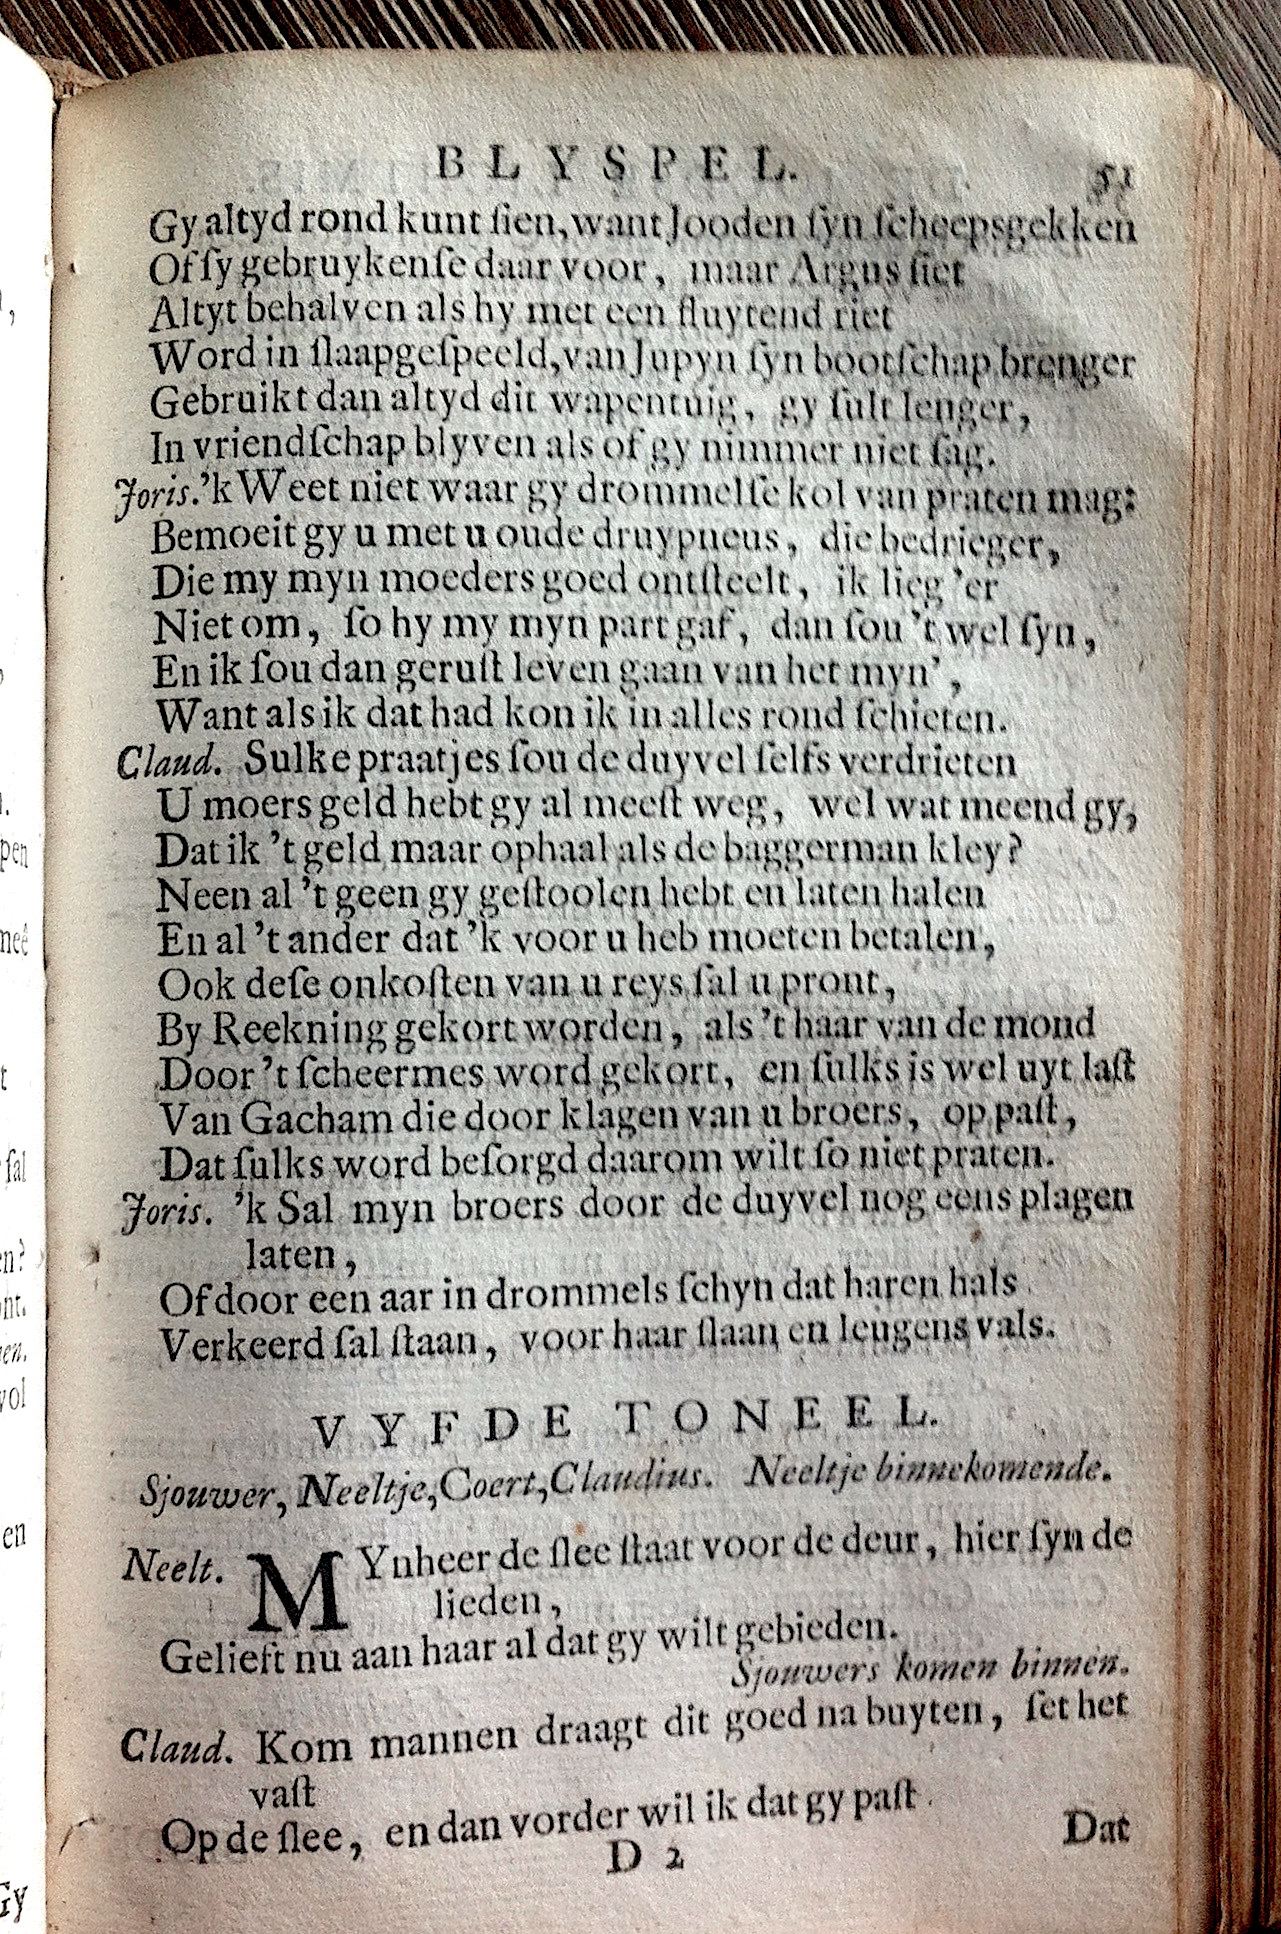 BLYSPEL. 51
Gy altyd rond kunt ſien, want Jooden ſyn ſcheepsgekken
Of ſy gebruykenſe daar voor, maar Argus ſiet
Altyt behalven als hy met een fluytend riet
Word in ſlaap geſpeeld, van Jupyn ſyn bootſchap brenger
Gebruikt dan altyd dit wapentuig, gy ſult lenger,
In vriendſchap blyven als of gy nimmer niet ſag.
Joris. 'k Weet niet waar gy drommelſe kol van praten mag:
Bemoeit gy u met u oude druypneus, die bedrieger,
Die my myn moeders goed ontſteelt, ik lieg 'er
Niet om, ſo hy my myn part gaf, dan ſou 't wel ſyn,
En ik ſou dan geruſt leven gaan van het myn',
Want als ik dat had kon ik in alles rond ſchieten.
Claud. Sulke praatjes ſou de duyvel ſelfs verdrieten
U moers geld hebt gy al meeſt weg, wel wat meend gy,
Dat ik 't geld maar ophaal als de baggerman kley?
Neen al 't geen gy geſtoolen hebt en laten halen
En al 't ander dat 'k voor u heb moeten betalen,
Ook deſe onkoſten van u reys ſal u pront,
By Reekning gekort worden, als 't haar van de mond
Door 't ſcheermes word gekort, en ſulks is wel uyt laſt
Van Gacham die door klagen van u broers, op paſt,
Dat ſulks word beſorgd daarom wilt ſo niet praten.
Joris. 'k Sal myn broers door de duyvel nog eens plagen
laten,
Of door een aar in drommels ſchyn dat haren hals
Verkeerd ſal ſtaan, voor haar ſlaan en leugens vals.
VYFDE TONEEL.
Sjouwer, Neeltje, Coert, Claudius. Neeltje binnekomende.
Neelt. MYnheer de ſlee ſtaat voor de deur, hier ſyn de
lieden,
Gelieft nu aan haar al dat gy wilt gebieden.
Sjouwers komen binnen.
Claud. Kom mannen draagt dit goed na buyten, ſet het
vaſt
Op de ſlee, en dan vorder wil ik dat gy paſt.
D 2 Dat